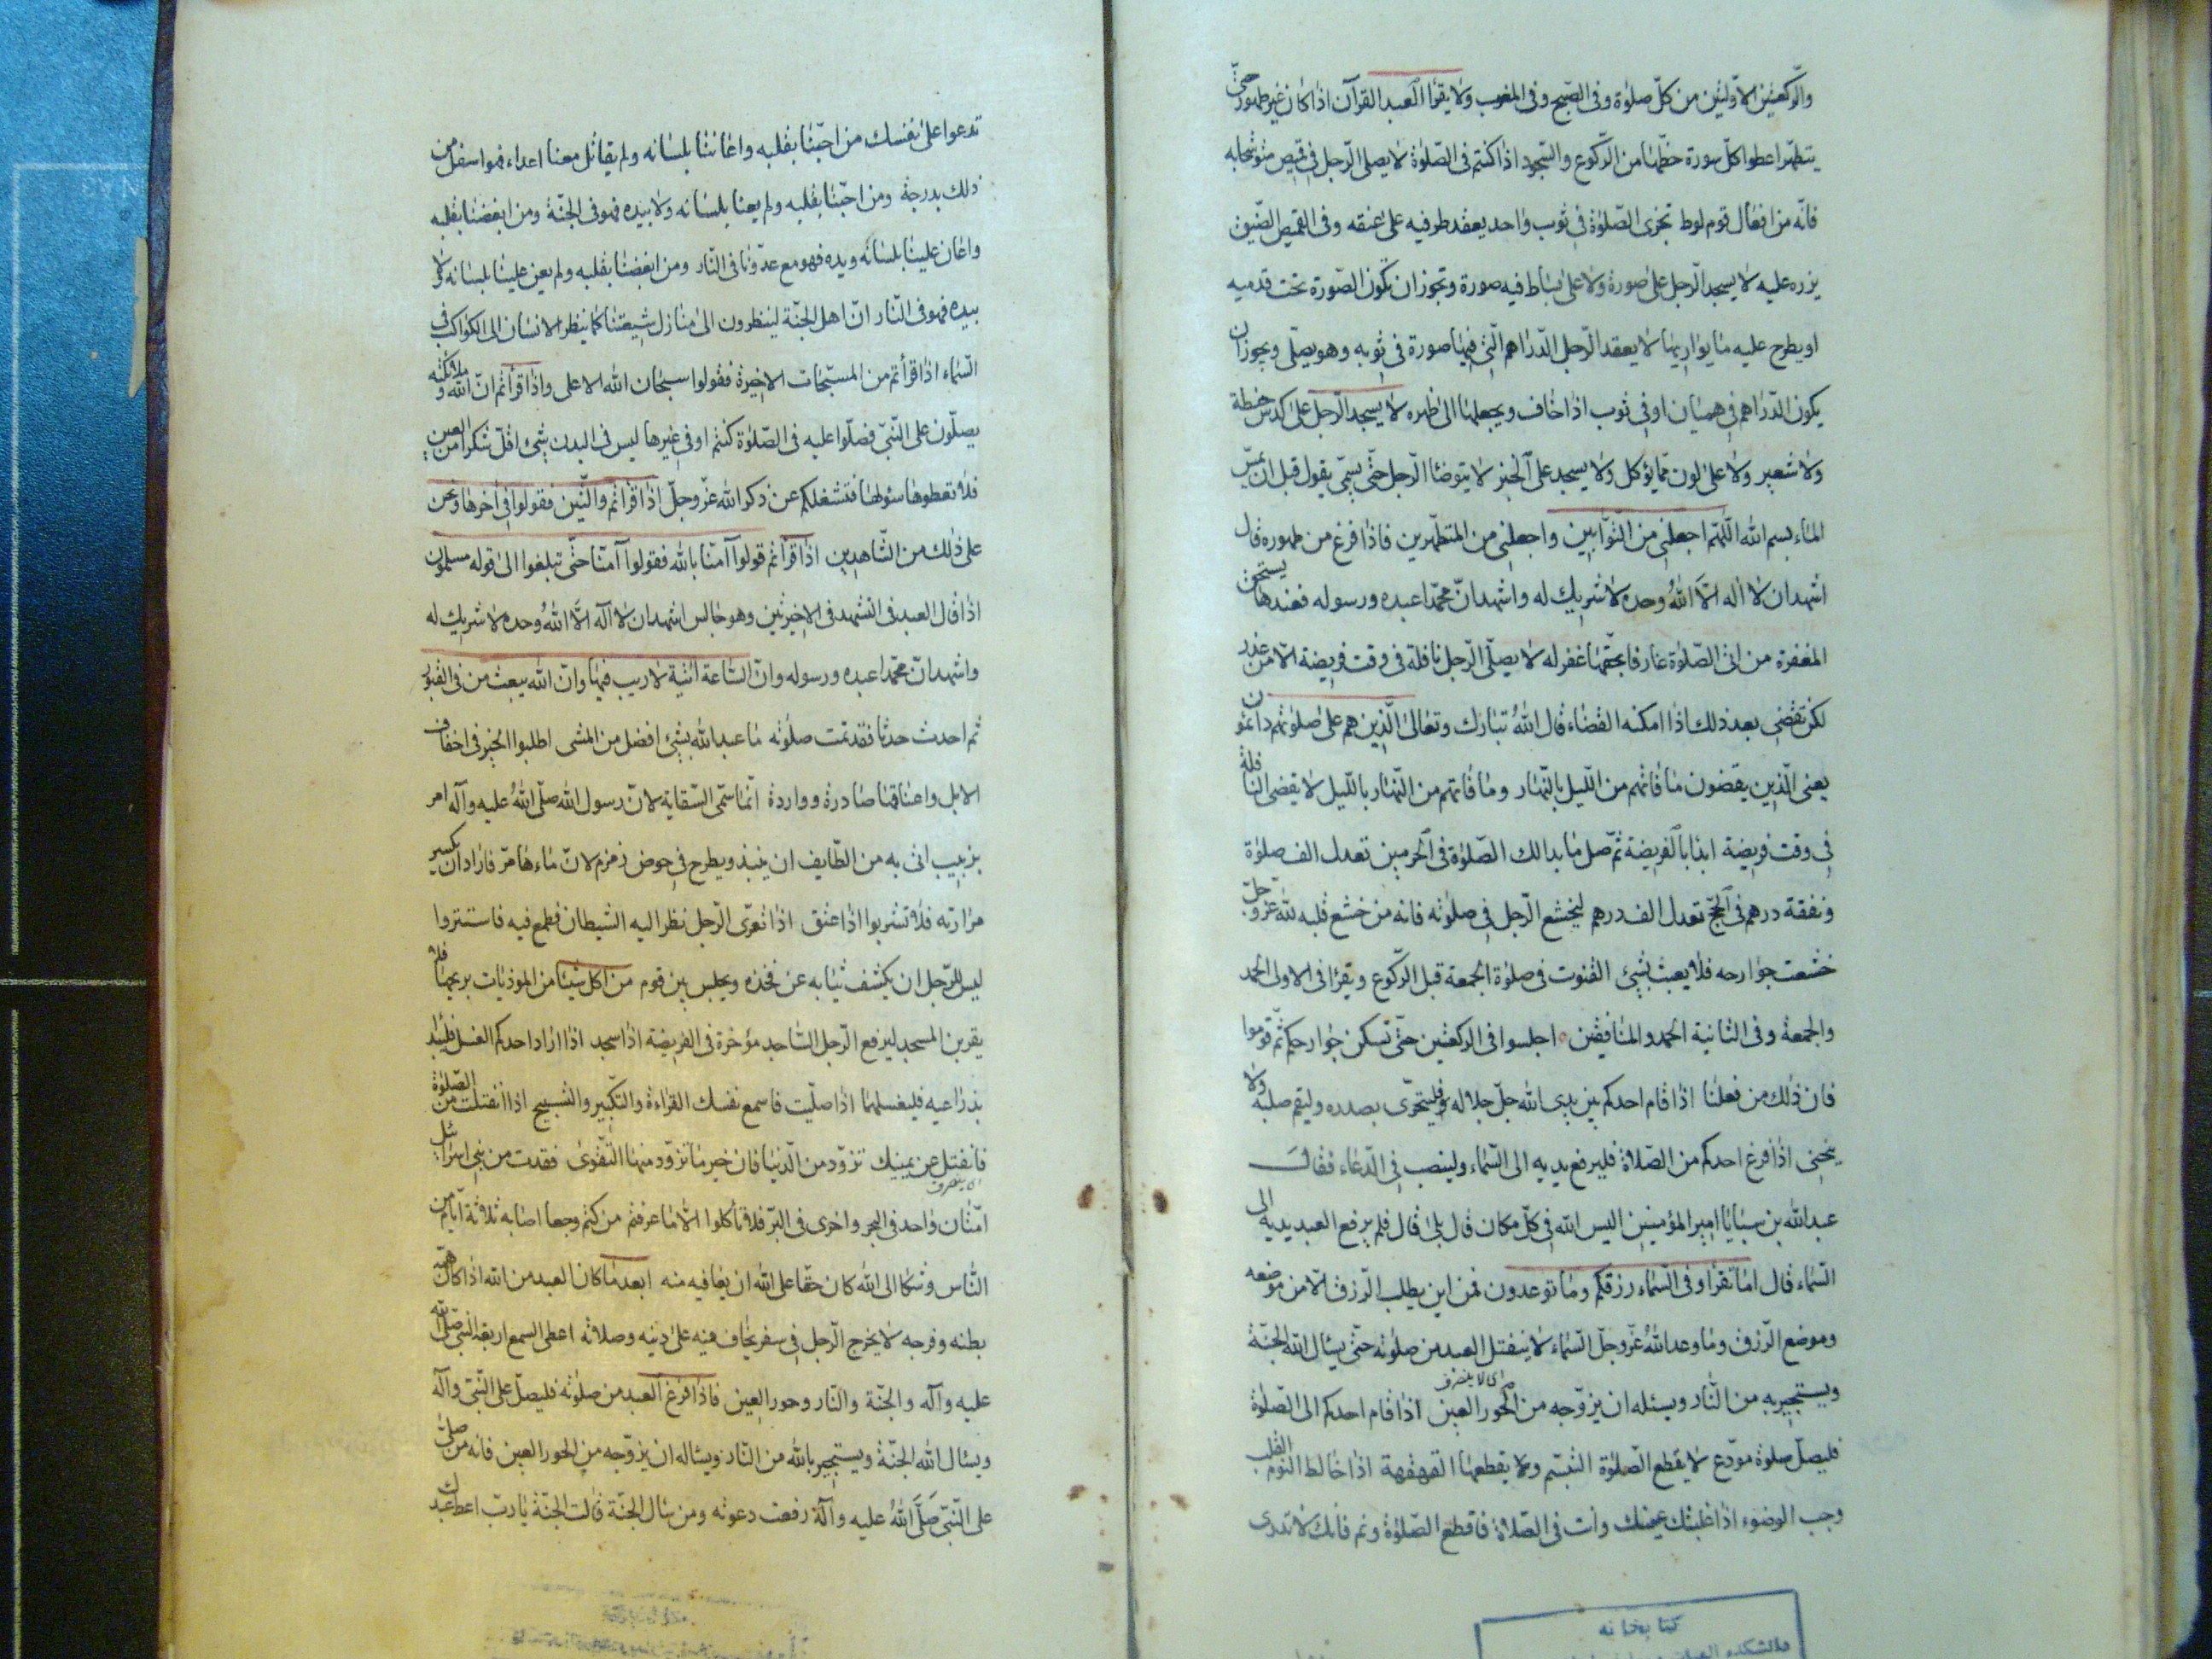 والرّكعتين الاوّلتين من كلّ صلوة وفى الصّبح وفى المغرب ولا يقرأ العبد القرآن اذا كان غير طهور حتّى
يتطهّر اعطوا كلّ سورة حظّها من الرّكوع والسّجود اذا كنتم فى الصّلوة لا يصلى الرّجل فى قميص متوشحا به
فانّه من افعال قوم لوط تجزى الصّلوة فى ثوب واحد يعقد طرفيه على عنقه وفى القميص الضّيق
يزره عليه لا يسجد الرّجل على صورة ولا على بساط فيه صورة وتجوز ان تكون الصّورة تحت قدميه
او يطرح عليه ما يواريها لا يعقد الرّجل الدّراهم الّتى فيها صورة فى ثوبه وهو يصلّى ويجوز ان
يكون الدّراهم فى هميان او فى ثوب اذا خاف ويجعلها الى ظهره لا يسجد الرّجل على كدس حنطة
ولا شعير ولا على لون ممّا يؤكل ولا يسجد على الخبز لا يتوضّأ الرّجل حتّى يسمّى يقول قبل ان يمسّ
الماء بسم الله اللّهمّ اجعلنى من التّوّابين واجعلنى من المتطهّرين فاذا فرغ من طهوره قال
اشهد ان لا اله الّا اللهُ وحده لا شريك له واشهد انّ محمّدا عبده ورسوله فعندها يستحق
المغفرة من اتى الصّلوة عارفا بحقّها غفر له لا يصلّى الرّجل نافلة فى وقت فريضة الّا من عذر
لكن تقضى بعد ذلك اذا امكنه القضاء قال اللهُ تبارك وتعالى الّذين هم على صلوتهم دائمون
يعنى الّذين يقضون ما فاتهم من اللّيل بالنّهار وما فاتهم من النّهار باللّيل لا يقضى النافلة
فى وقت فريضة ابدا بالفريضة ثمّ صل ما بدا لك الصّلوة فى الحرمين تعدل الف صلوة
ونفقة درهم فى الحجّ تعدل الف درهم ليخشع الرّجل فى صلوته فانه من خشع قلبه لله عزّ وجلّ
خشعت جوارحه فلا يعبث بشئ القنوت فى صلوة الجمعة قبل الرّكوع ويقرأ فى الاولى الحمد
والجمعة وفى الثانية الحمد والمنافقين اجلسوا فى الركعتين حتّى تسكن جوارحكم ثمّ قوموا
فان ذلك من فعلنا اذا قام احدكم بين يدى الله جلّ جلاله فليتحرّى بصدره وليقم صلبه ولا
ينحنى اذا فرغ احدكم من الصّلاة فليرفع يديه الى السّماء ولينصب فى الدّعاء فقال
عبد الله بن سبا يا امير المؤمنين اليس الله فى كلّ مكان قال بلى قال فلم يرفع العبد يديه الى
السّماء قال اما تقرأ وفى السّماء رزقكم وما توعدون فمن اين يطلب الرّزق الّا من موضعه
وموضع الرّزق وما وعد اللهُ عزّ وجلّ السّماء لا ينفتل العبد من صلوته حتّى يسئال الله الجنّة
اى لا ينصرف
ويستجير به من النّار ويسئله ان يزوّجه من الحور العين اذا قام احدكم الى الصّلوة
فليصلّ صلوة مودّع لا يقطع الصّلوة التبسّم ولا يقطعها القهقهة اذا خالط النّوم القلب
وجب الوضوء اذا غلبتك عينك وانت فى الصّلاة فاقطع الصّلوة ونم فانك لا تدرى
كتابخانه
دانشكده
تدعوا على نفسك من احبّنا بقلبه واعاننا بلسانه ولم يقاتل معنا اعداء فهو اسفل من
ذلك بدرجة ومن احبّنا بقلبه ولم يعنا بلسانه ولا بيده فهو فى الجنّة ومن ابغضنا بقلبه
واعان علينا بلسانه ويده فهو مع عدّونا فى النّار ومن ابغضنا بقلبه ولم يعن علينا بلسانه ولا
بيده فهو فى النّار انّ اهل الجنّة لينظرون الى منازل شيعتنا كما ينظر الانسان الى الكواكب فى
السّماء اذا قرأتم من المسبّحات الاخيرة فقولوا سبحان الله الاعلى واذا قرأتم انّ الله وملائكته
يصلّون على النّبىّ فصلّوا عليه فى الصّلوة كنتم او فى غيرها ليس فى البدن شئ اقلّ شكرا من العين
فلا تعطوها سئولها فتشغلكم عن ذكر الله عزّ وجلّ اذا قرأتم والتّين فقولوا فى آخرها ونحن
على ذلك من الشّاهدين اذا قرأتم قولوا آمنّا بالله فقولوا آمنّا حتّى تبلغوا الى قوله مسلمون
اذا قال العبد فى التشهد فى الاخيرتين وهو جالس اشهد ان لا آله الّا اللهُ وحده لا شريك له
واشهد انّ محمّدا عبده ورسوله وانّ السّاعة اتية لا ريب فيها وانّ الله يبعث من فى القبور
ثم احدث حدثا فقد تمت صلوته ما عبد الله بشئ افضل من المشى اطلبوا الخير فى اخفاف
الابل واعناقها صادرة وواردة انّما سمّى السّقاية لانّ رسول الله صلّى اللهُ عليه وآله امر
بزبيب اتى به من الطّايف ان ينبذ ويطرح فى حوض زمزم لانّ ماءها مرّ فاراد ان يكسر
مرارته فلا تشربوا اذا عتق اذا تعرّى الرّجل نظر اليه الشيطان فطمع فيه فاستتروا
ليس للرّجل ان يكشف ثيابه عن فخذه ويجلس بين قوم من اكل شيئا من الموذيات بريحها فلا
يقربن المسجد ليرفع الرّجل السّاجد مؤخرة فى الفريضة اذا سجد اذا اراد احدكم الغسل فليبدا
بذراعيه فليغسلهما اذا صلّيت فاسمع نفسك القراءة والتّكبير والتسبيح اذا انفتلت من الصّلوة
فانفتل عن يمينك تزوّد من الدّنيا فان خير ما تزوّد منها التّقوى فقدت من بنى اسرائيل
اى ينصرف
امّتان واحد فى البحر واخرى فى البرّ فلا تأكلوا الّا ما عرفتم من كتم وجعا اصابه ثلاثة ايّام من
النّاس وشكا الى الله كان حقّا على الله ان يعافيه منه ابعد ما كان العبد من الله اذا كان همّه
بطنه وفرجه لا يخرج الرّجل فى سفر يخاف منه على دينه وصلاته اعطى السمع اربعة النبىّ صلّى الله
عليه وآله والجنّة والنّار وحور العين فاذا فرغ العبد من صلوته فليصلّ على النّبىّ وآله
ويسئال الله الجنّة ويستجير بالله من النّار ويسئاله ان يزوّجه من الحور العين فانه من صلّى
على النّبىّ صَلّى اللهُ عليه وآلة رفعت دعوته ومن سئال الجنّة قالت الجنّة يا ربّ اعط عبدك